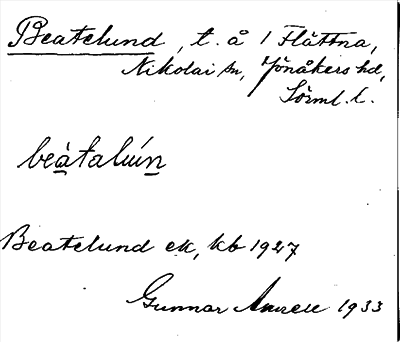 Beatelund, t. å 1 Flättna,
Nikolai sn, Jönåkers hd,
Sörml. l.
beàtalúǹn
Beatelund ek, kb 1927
Gunnar 1933